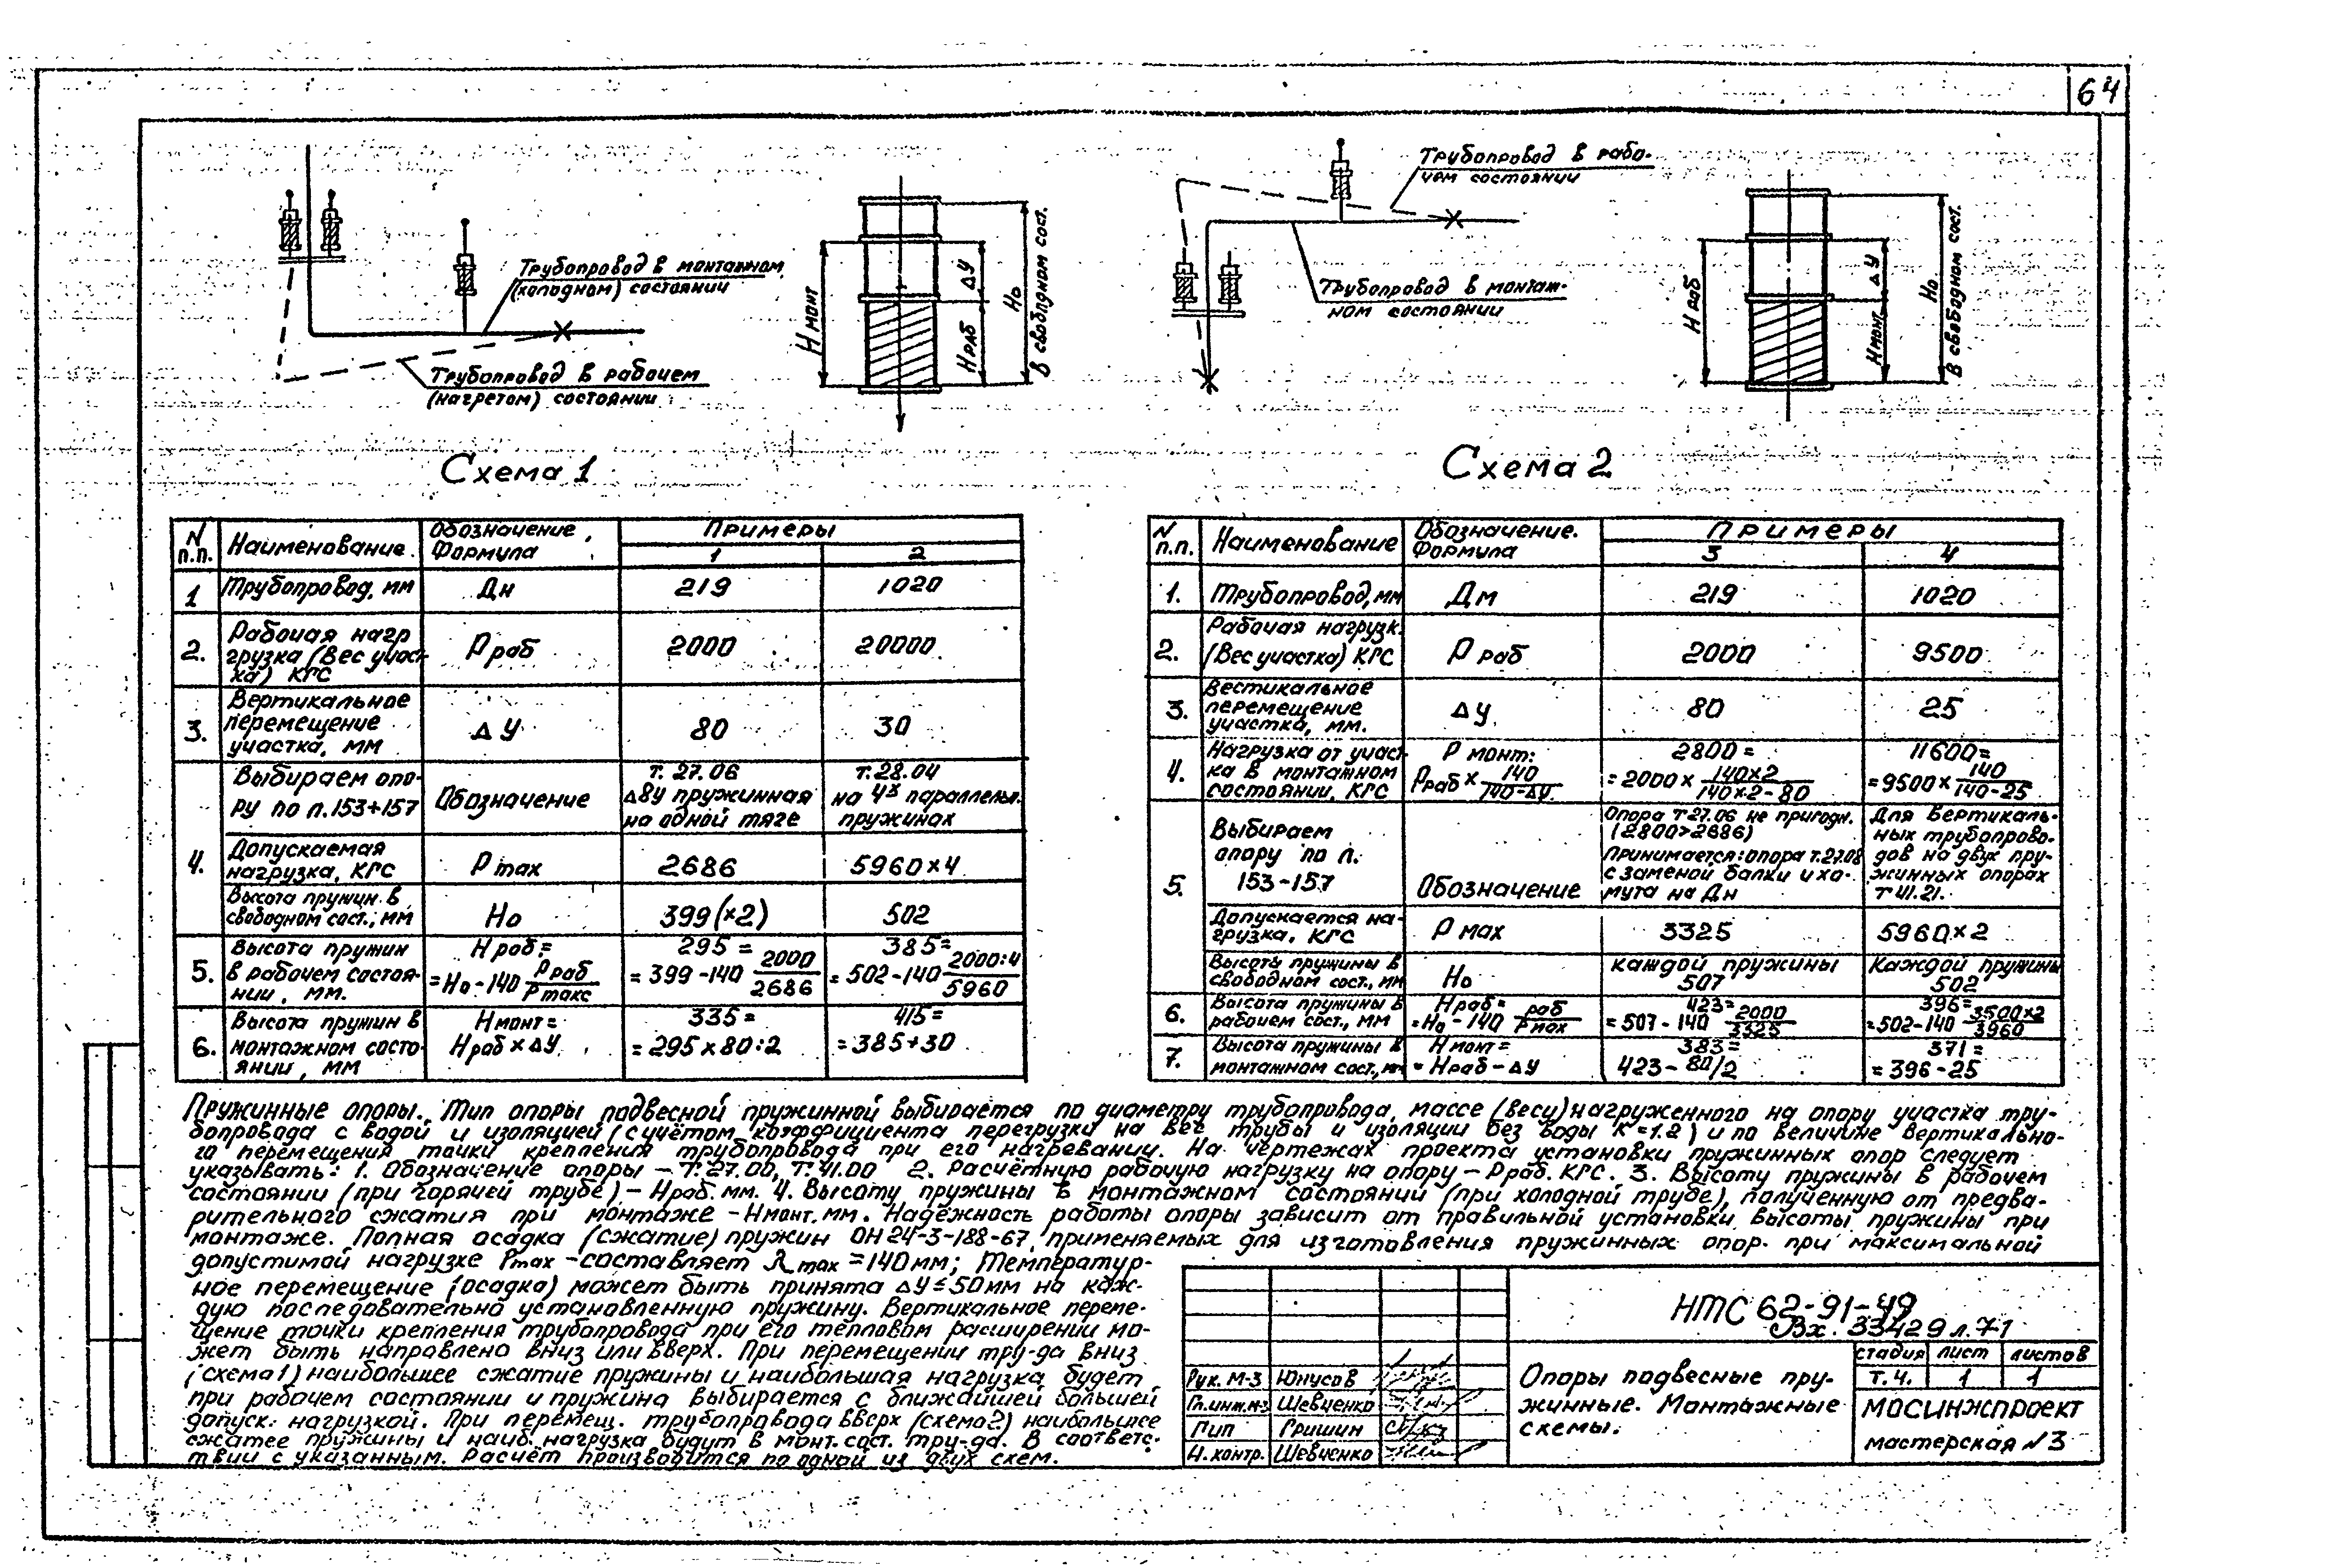 64
Трубопровод в монтажном
(холодном) состоянии
Трубопровод в рабочем
(нагретом) состоянии
Нмонт
ΔУ
Нраб
Но
в свободном сост.
Схема 1
Трубопровод в рабо-
чем состоянии
Трубопровод в монтаж-
ном состоянии
Нраб
ΔУ
Нмонт
Но
в свободном сост.
Схема 2
N п.п. Наименование Обозначение. Формула Примеры
1 2
1 Трубопровод, мм Дн 219 1020
2. Рабочая нагр
грузка (Вес участ-
ка) КГС Рраб 2000 20000
3. Вертикальное
перемещение
участка, мм ΔУ 80 30
4. Выбираем опо-
ру по п.153+157 Обозначение
т. 27.06
Δ8у пружинная
на одной тяге
т.28.04
на 4х параллельн.
пружинах
Допускаемая
нагрузка, КГС Рmax 2686 5960×4
Высота пружин в
свободном сост., мм Но 399(×2) 502
5. Высота пружин
в рабочем состоя-
нии, мм. Нраб= =Но-140 Рраб/Рмакс 295= =399-140 2000/2686 385= =502-140 2000:4/5960
6. Высота пружин в
монтажном состо-
янии, мм Нмонт= Нраб×ΔУ 335= =295×80:2 415= =385+30
N п.п. Наименование Обозначение. Формула Примеры
3 4
1. Трубопровод, мм Дм 219 1020
2. Рабочая нагрузк.
(Вес участка) КГС Рраб 2000 9500
3. Вестикальное
перемещение
участка, мм. ΔУ 80 25
4. Нагрузка от участ-
ка в монтажном
состоянии, КГС Рмонт: Рраб× 140/140-ΔУ 2800= =2000× 140×2/140×2-80 11600= =9500× 140/140-25
5. Выбираем
опору по п.
153-157 Обозначение
Опора Т27.06 не пригодн.
(2800>2686)
Принимается: опора т.27.08
с заменой балки и хо-
мута на Дн
Для Вертикаль-
ных трубопрово-
дов на двух пру-
жинных опорах
т 41.21.
Допускается на-
грузка, КГС Рмах 3325 5960×2
Высоты пружины в
свободном сост., мм Но каждой пружины 507 Каждой пружины 502
6. Высота пружины в
рабочем сост., мм Нраб= =Но-140 Рраб/Рмах 423= =507-140 2000/3325 396= =502-140 3500×2/3960
7. Высота пружины в
монтажном сост., мм Нмонт= =Нраб-ΔУ 383= 423-80/2 371= =396-25
Пружинные опоры. Тип опоры подвесной пружинной выбирается по диаметру трубопровода, массе (весу) нагруженного на опору участка тру-
бопровода с водой и изоляцией (с учётом коэффициента перегрузки на вес трубы и изоляции без воды К=1.2) и по величине вертикально-
го перемещения точки крепления трубопровода при его нагревании. На чертежах проекта установки пружинных опор следует
указывать: 1. Обозначение опоры – Т.27.00, Т.41.00 2. Расчётную рабочую нагрузку на опору – Рраб. КГС. 3. Высоту пружины в рабочем
состоянии (при горячей трубе) – Нраб. мм. 4. Высоту пружины в монтажном состоянии (при холодной трубе), полученную от предва-
рительного сжатия при монтаже – Нмонт. мм. Надёжность работы опоры зависит от правильной установки высоты пружины при
монтаже. Полная осадка (сжатие) пружин ОН 24-3-188-67, применяемых для изготовления пружинных опор при максимальной
допустимой нагрузке Рmax – составляет λmax =140мм; Температур-
ное перемещение (осадка) может быть принята ΔУ≤50мм на каж-
дую последовательно установленную пружину. Вертикальное переме-
щение точки крепления трубопровода при его тепловом расширении мо-
жет быть направлено вниз или вверх. При перемещении тру-да вниз
(схема1) наибольшее сжатие пружины и наибольшая нагрузка будет
при рабочем состоянии и пружина выбирается с ближайшей большей
допуск. нагрузкой. При перемещ. трубопровода вверх (схема2) наибольшее
сжатее пружины и наиб. нагрузка будут в монт. сост. тру-да. В соответс-
твии с указанным. Расчёт производится по одной из двух схем.
НТС 62-91-49
Вх. 33429 л.71
Рук. М-3 Юнусов
Гл.инж.м-3 Шевченко
Гип Гришин
Н. контр. Шевченко
Опоры подвесные пру-
жинные. Монтажные
схемы.
стадия лист листов
Т.ч. 1 1
МОСИНЖПРОЕКТ
мастерская N3